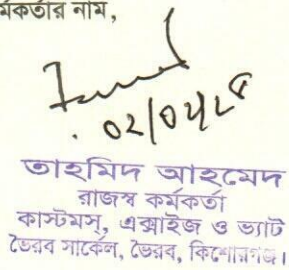 র্মকর্তার নাম,
তাহমিদ আহমেদ
রাজস্ব কর্মকর্তা
কাস্টমস্, এক্সাইজ ও ভ্যাট
ভৈরব সার্কেল, ভৈরব, কিশোরগঞ্জ।